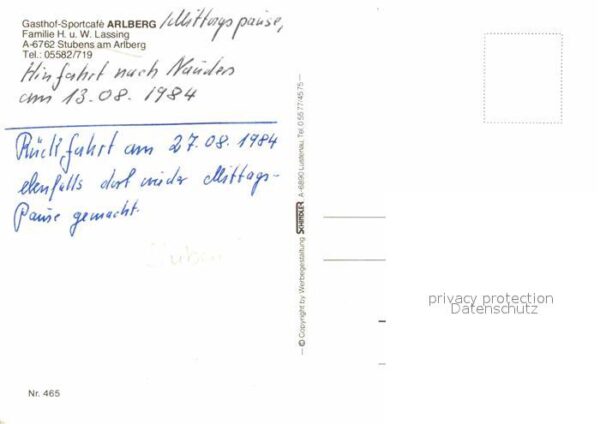 Gasthof-Sportcafé ARLBERG /Mittagspause,
Familie H. u. W. Lassing
A-6762 Stubens am Arlberg
Tel.: 05582/719
Hinfahrt nach Nauders
am 13.08.1984
Rückfahrt am 27.08.1984
ebenfalls dort wieder Mittags-
Pause gemacht.
Nr. 465
— © Copyright by Werbegestaltung SCHINDLER A-6890 Lustenau, Tel. 0 55 77/45 75 —
privacy protection
Datenschutz